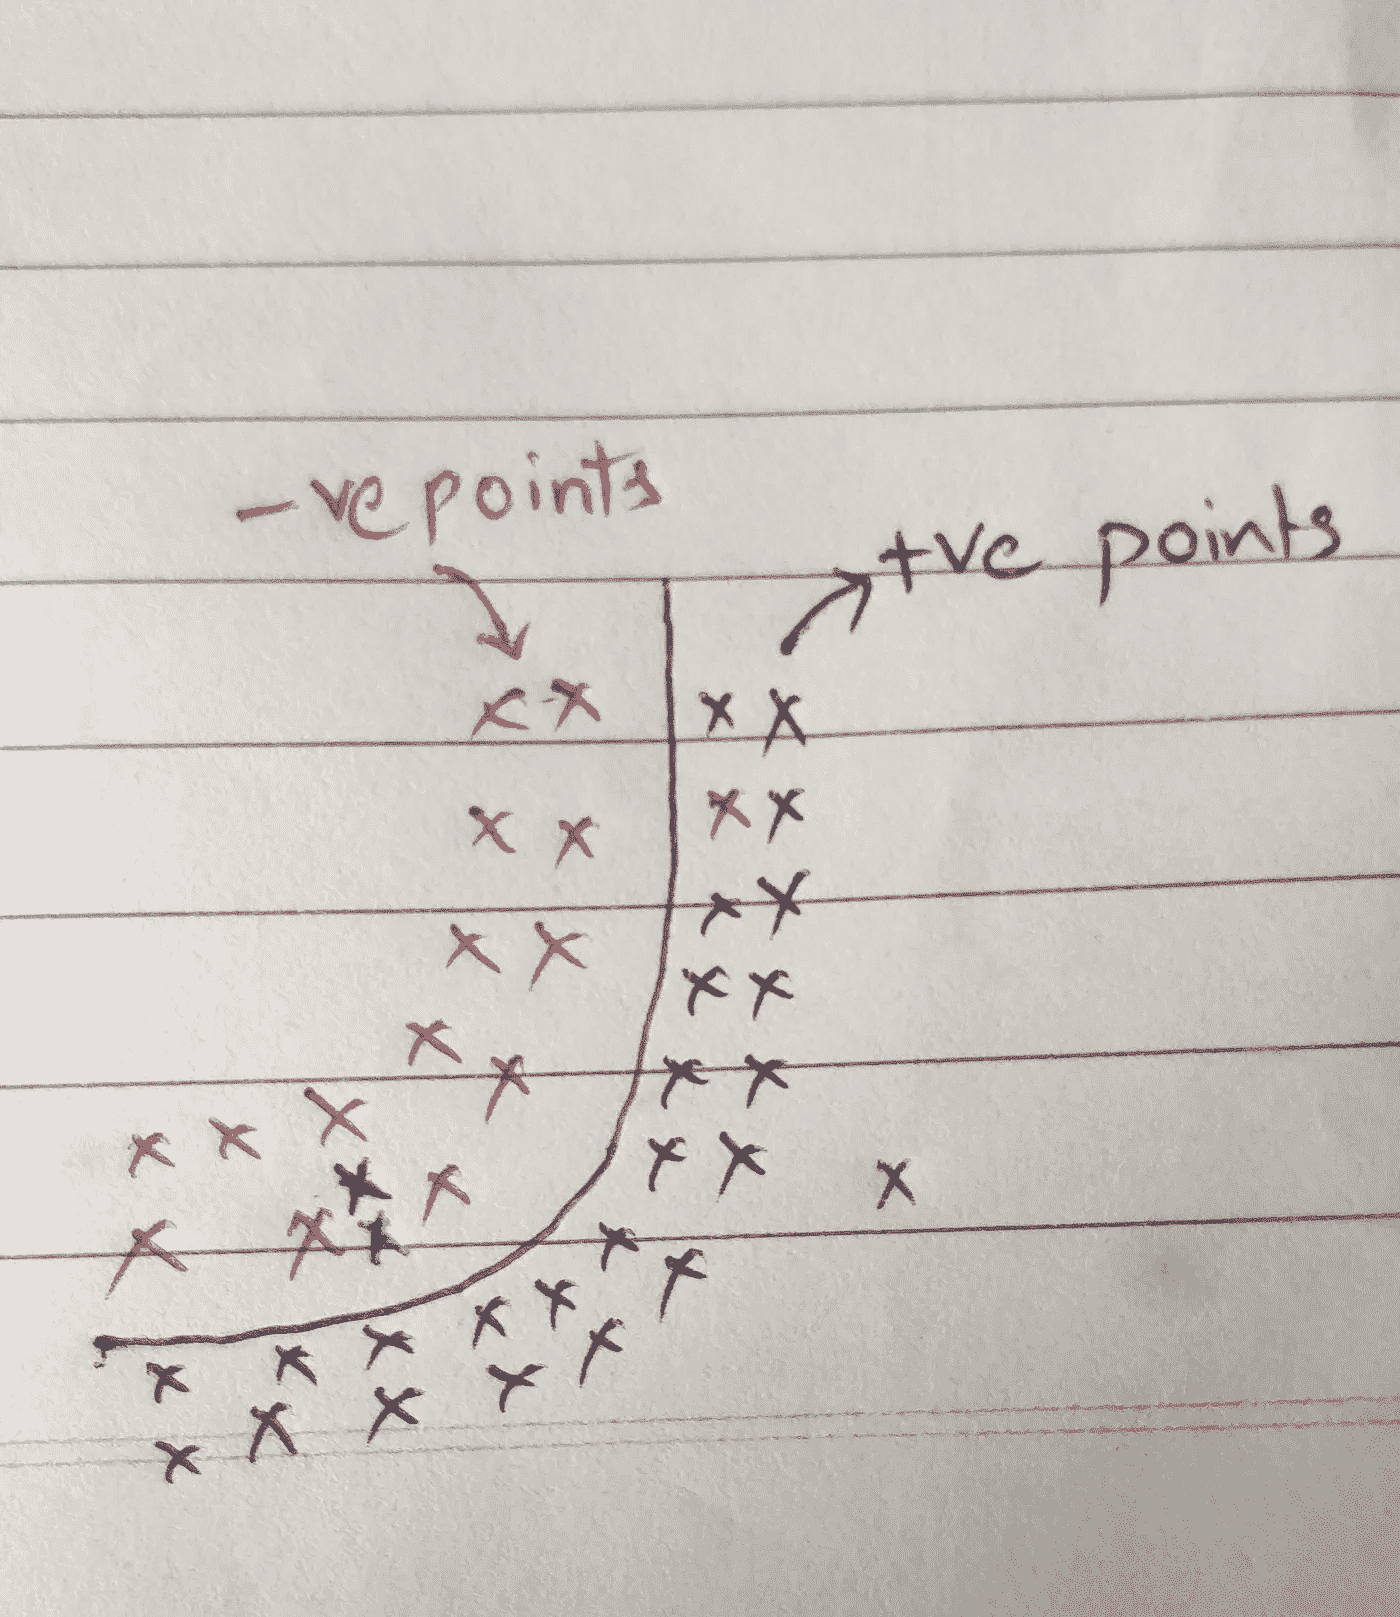 -ve points
+ve points